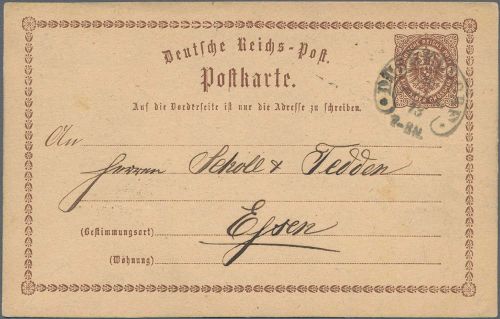 Deutsche Reichs-Post.
Postkarte.
Auf die Vorderseite ist nur die Adresse zu schreiben.
An
Herren Scholl & Tedden
Essen
(Bestimmungsort)
(Wohnung)